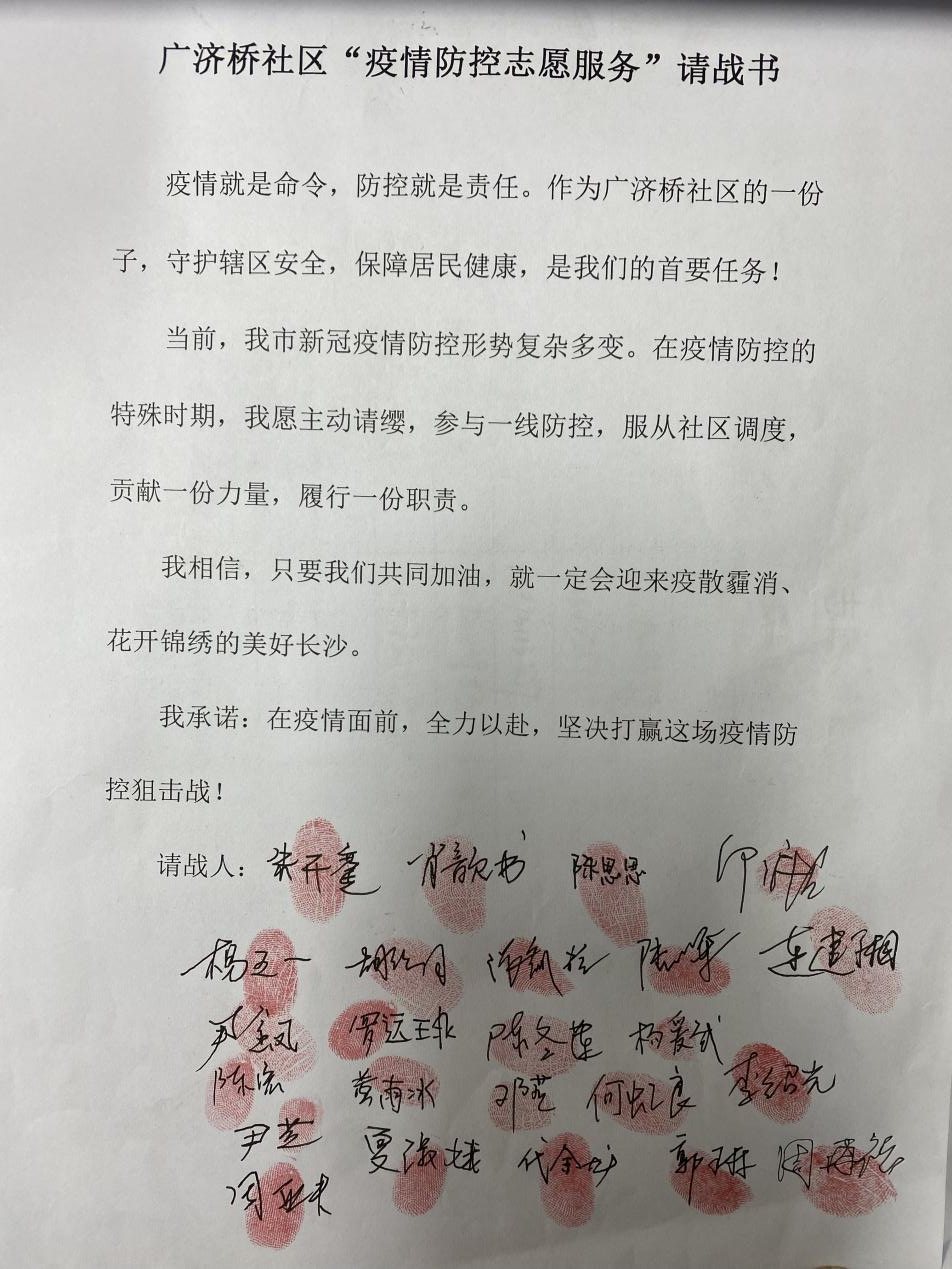 广济桥社区“疫情防控志愿服务”请战书
疫情就是命令，防控就是责任。作为广济桥社区的一份
子，守护辖区安全，保障居民健康，是我们的首要任务！
当前，我市新冠疫情防控形势复杂多变。在疫情防控的
特殊时期，我愿主动请缨，参与一线防控，服从社区调度，
贡献一份力量，履行一份职责。
我相信，只要我们共同加油，就一定会迎来疫散霾消、
花开锦绣的美好长沙。
我承诺：在疫情面前，全力以赴，坚决打赢这场疫情防
控狙击战！
请战人： 陈思思
杨五一
尹金凤 罗远玉 陈冬莲 杨爱武
陈宏 黄雨冰 邓芝 何虹良 李绍光
尹芝 郭琳
周亚夫